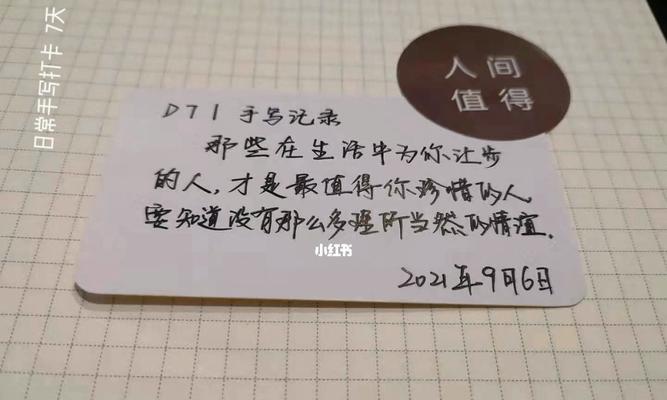 日常手写打卡 7天
人间
值得
D71 手写记录
那些在生活中为你让步
的人,才是最值得你珍惜的人。
要知道没有那么多理所当然的情谊。
小红书
2021年9月6日